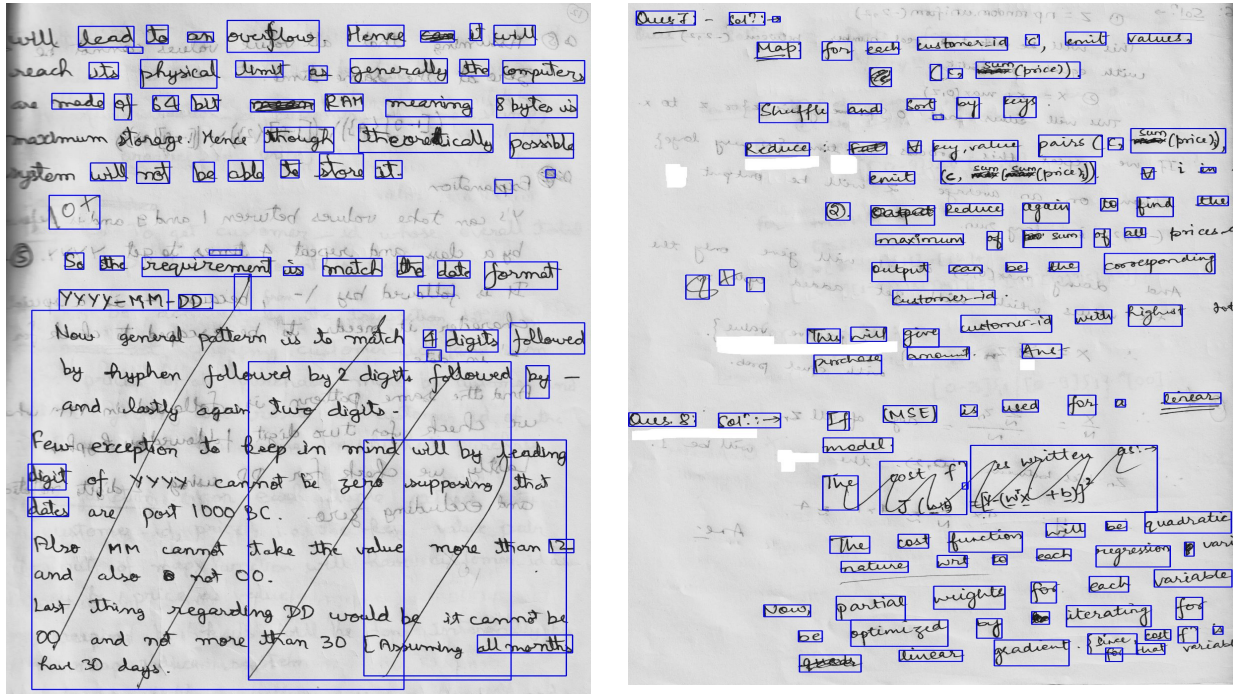 will lead to an overflow. Hence it will
reach its physical limit as generally the computers
are made of 64 bit RAM meaning 8 bytes is
maximum storage. Hence though theoretically possible
system will not be able to store it.
5
So the requirement is match the date format
YYYY-MM-DD
Now general pattern is to match 4 digits followed
by hyphen followed by 2 digits followed by -
and lastly again two digits-
Few exception to keep in mind will by leading
digit of YYYY cannot be zero supposing that
dates are post 1000 BC.
Also MM cannot take the value more than 12
and also not 00.
Last thing regarding DD would be it cannot be
00 and not more than 30 [Assuming all months
have 30 days.
Ques 7 - Solⁿ:-
Map for each customer-id c, emit values,
(c, sum(price))
Shuffle and sort by keys
Reduce : ∀ key, value pairs (c, sum(price)),
emit (c, sum(price)) ∀ i in
2). Reduce again to find the
maximum of sum of all prices
output can be the corresponding
customer-id
This will give customer-id with highest
purchase amount. Ans
Ques 8: Solⁿ:→ If (MSE) is used for a linear
model
The cost fⁿ as written as:→
The cost function will be quadratic
nature wrt to each regression
Now, partial weights for each variable
be optimized by iterating for
linear gradient. {since cost fⁿ is
for that variable